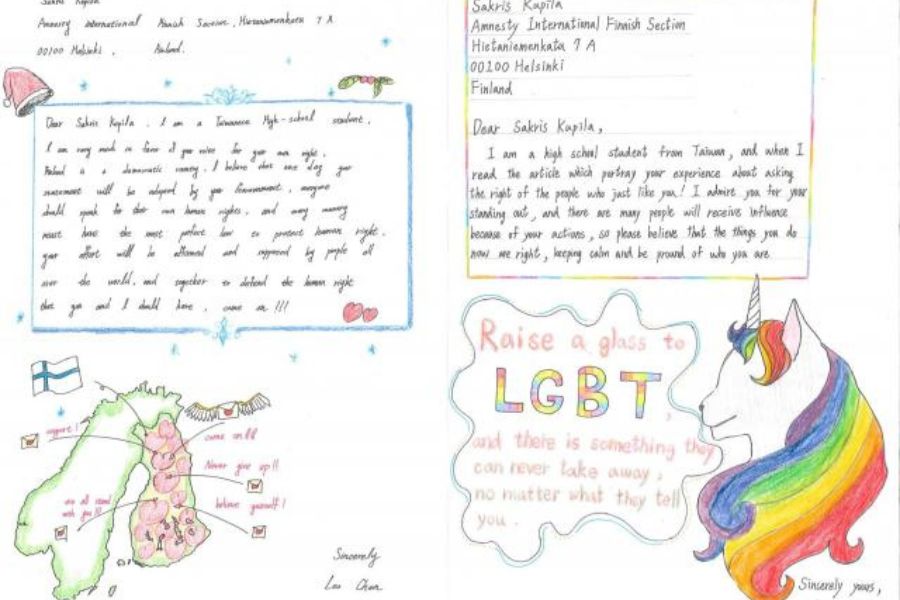 Sakris Kupila
Amnesty International Finnish Section, Hietaniemenkata 7 A
00100 Helsinki, Finland.
Dear Sakris Kupila, I am a Taiwanese High-school student.
I am very much in favor of your voice for your own right.
is a democratic country. I believe that one day your
statement will be adopted by your Government, everyone
should speak for their own human rights, and every country
must have the most perfect law to protect human right.
your effort will be affirmed and supported by people all
over the world, and together to defend the human right
that you and I should have, come on !!!
support !
come on!!!
Never give up!!
believe yourself!
we all stand
with you!!!
Sincerely
Chen
Sakris Kupila
Amnesty International Finnish Section
Hietaniemenkata 7 A
00100 Helsinki
Finland
Dear Sakris Kupila,
I am a high school student from Taiwan, and when I
read the article which portray your experience about asking
the right of the people who just like you! I admire you for your
standing out, and there are many people will receive influence
because of your actions, so please believe that the things you do
now are right, keeping calm and be pround of who you are.
Raise a glass to
LGBT,
and there is something they
can never take away,
no matter what they tell
you.
Sincerely yours,